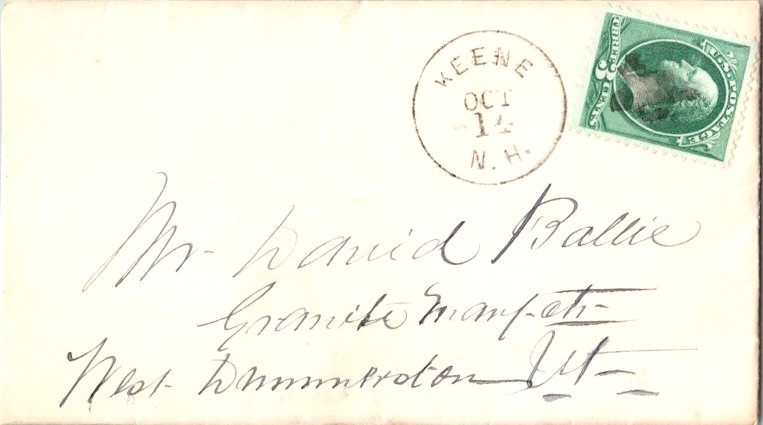 KEENE
OCT
14
N.H.
U.S. POSTAGE
THREE 3 CENTS
Mr David Ballie
Granite Manf-etr-
West Dummerston Vt-